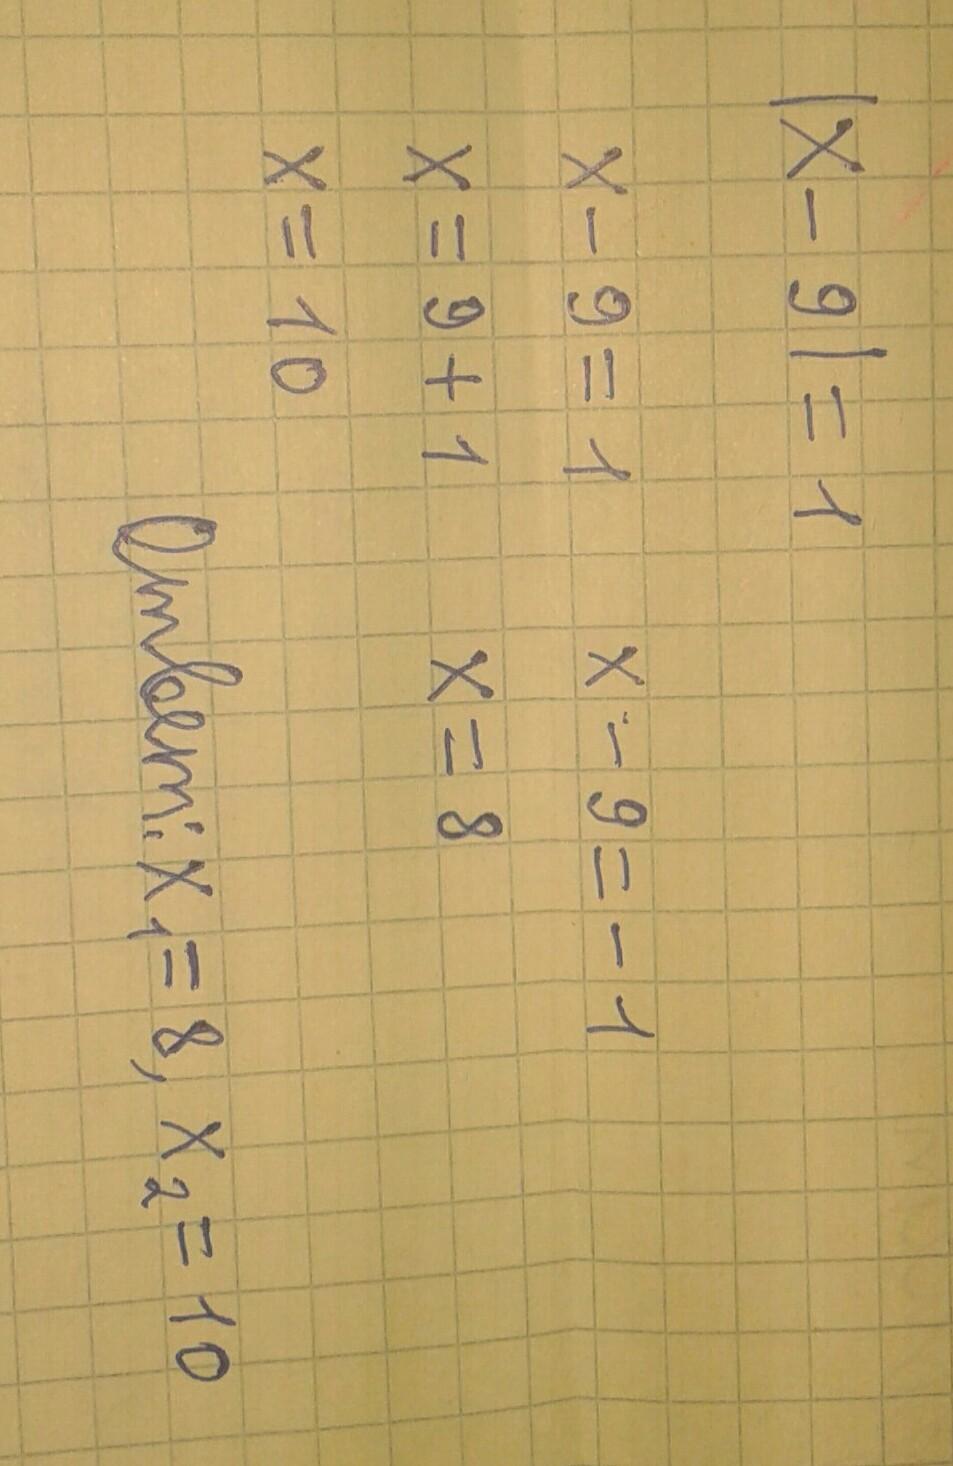 |x - 9| = 1
x - 9 = 1 x - 9 = - 1
x = 9 + 1 x = 8
x = 10
Ответ: x₁ = 8, x₂ = 10